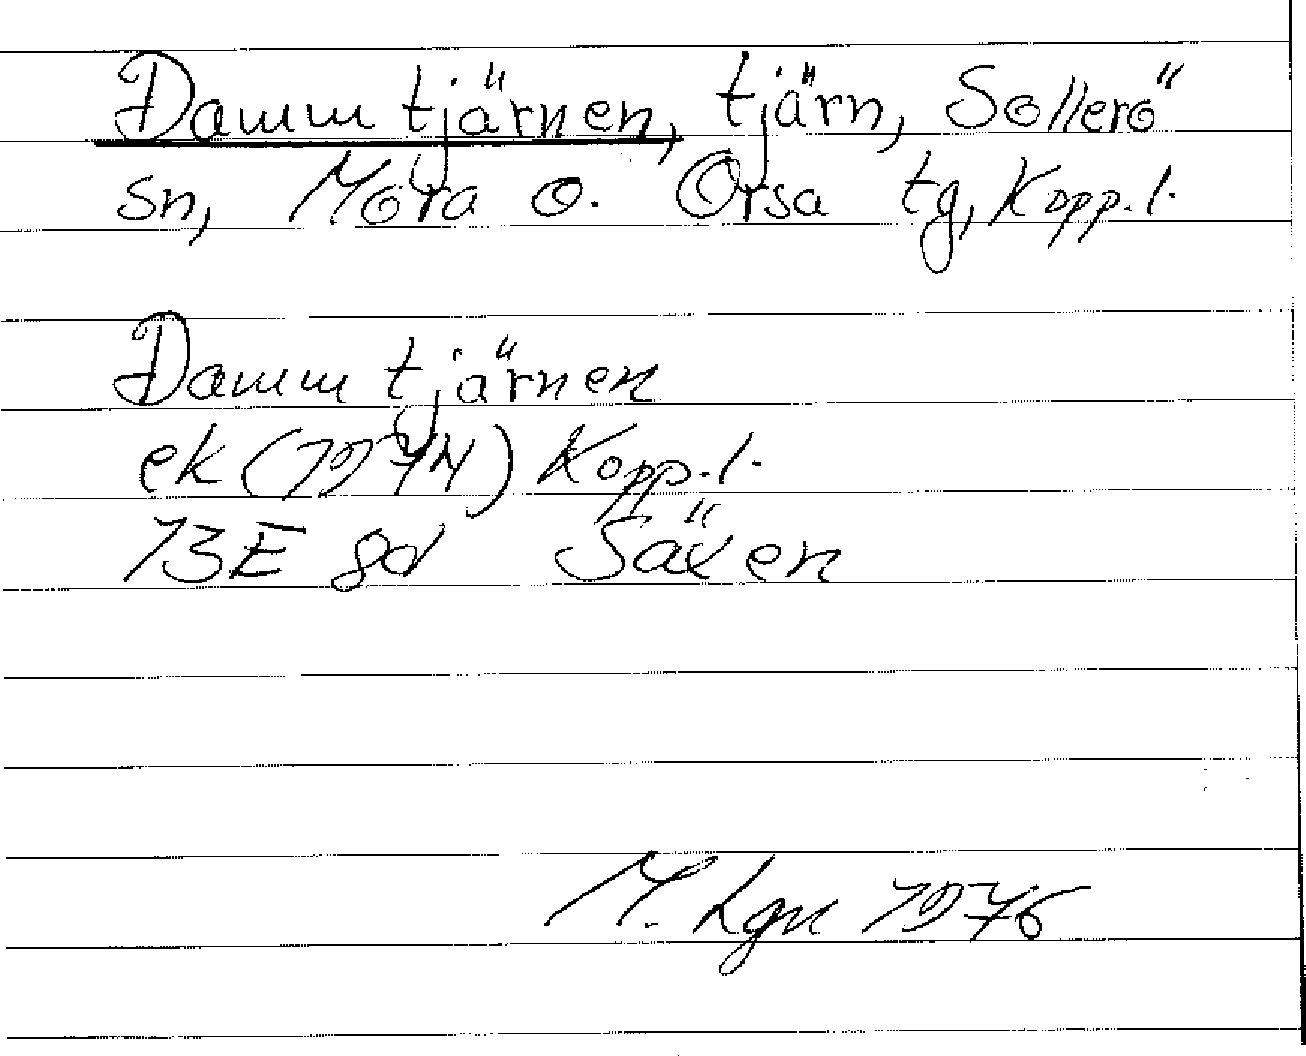 Dammtjärnen, tjärn, Sollerö
sn, Mora o. Orsa tg, Kopp. l.
Dammtjärnen
ek (1974) Kopp. l.
13E 8d Säxen
M. Lgn 1976